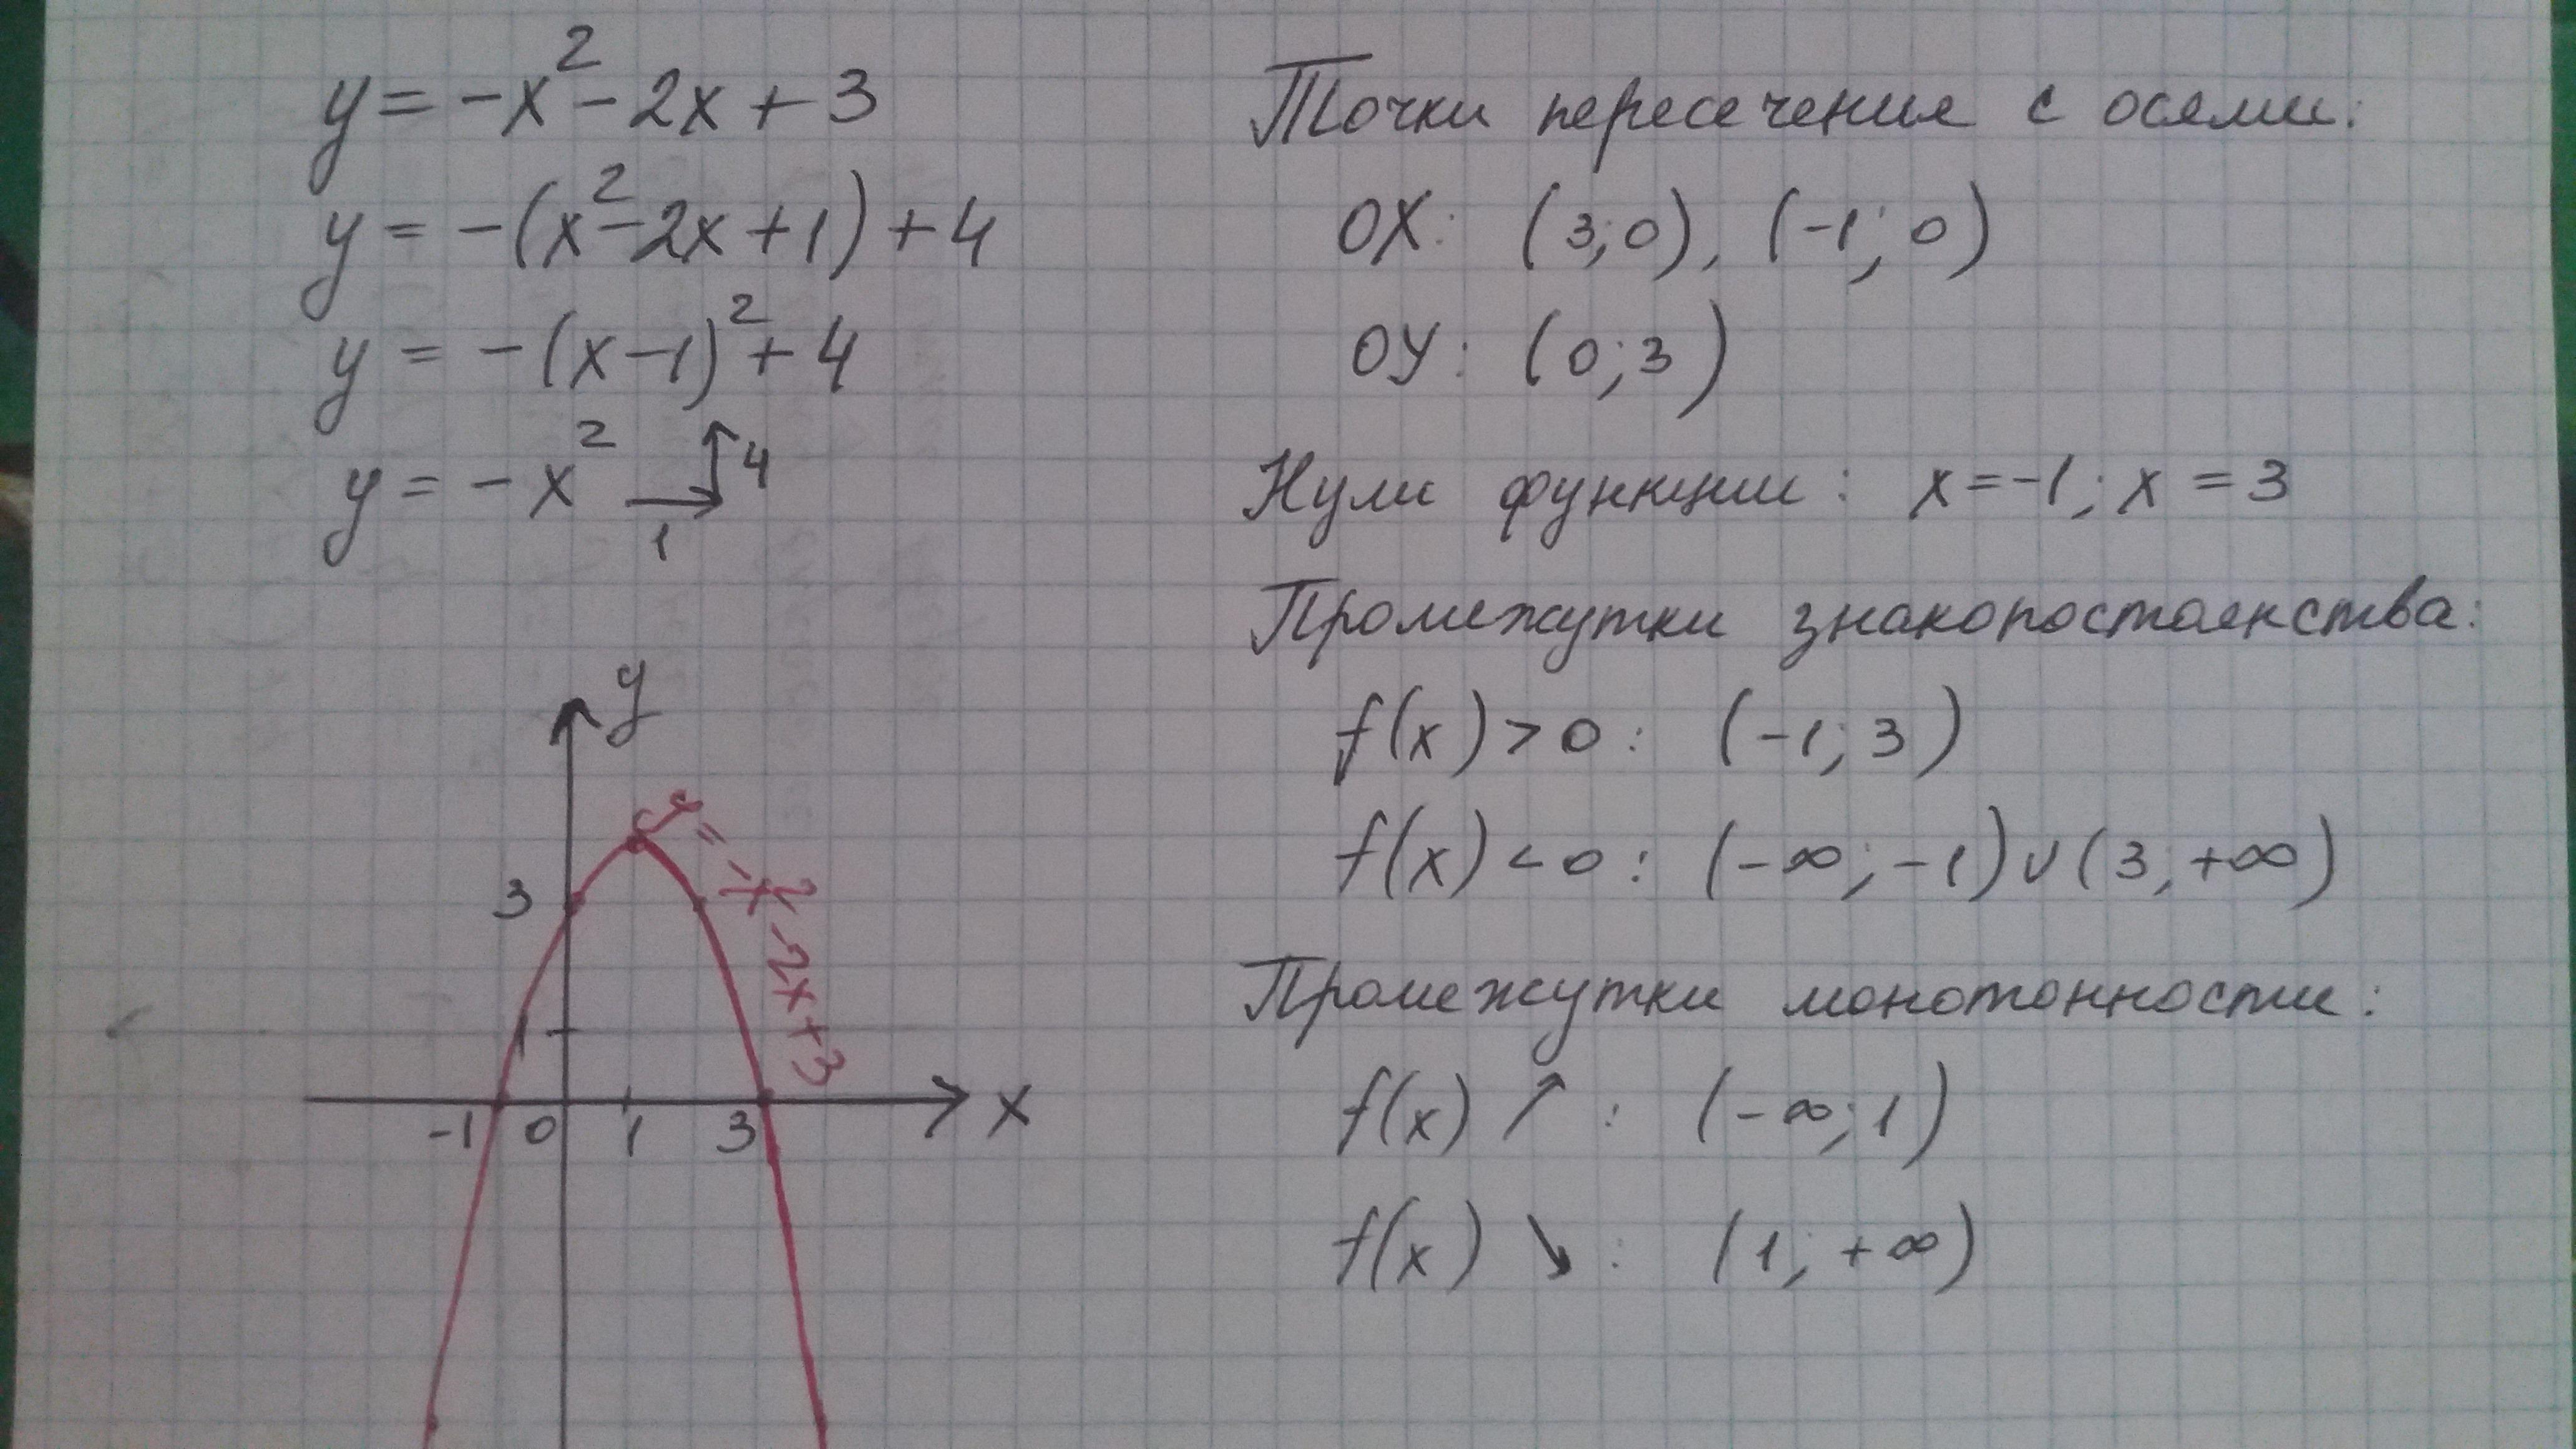 y = -x² - 2x + 3
y = -(x² - 2x + 1) + 4
y = -(x - 1)² + 4
y = -x² → 1 ↑ 4
y
y = -x² - 2x + 3
3
1
-1 0 1 3 x
Точки пересечения с осями:
OX: (3; 0), (-1; 0)
OY: (0; 3)
Нули функции: x = -1; x = 3
Промежутки знакопостоянства:
f(x) > 0: (-1; 3)
f(x) < 0: (-∞; -1) ∪ (3; +∞)
Промежутки монотонности:
f(x) ↗ : (-∞; 1)
f(x) ↘ : (1; +∞)